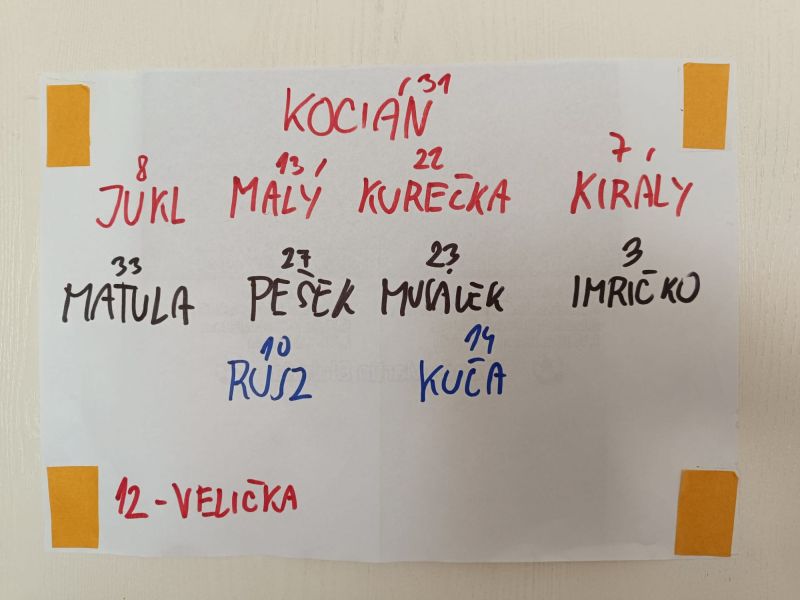 31
KOCIÁN
8 13 22 7
JUKL MALÝ KUREČKA KIRÁLY
33 27 23 3
MATULA PEŠEK MUSÁLEK IMRIČKO
10 14
RUSZ KUČA
12-VELIČKA